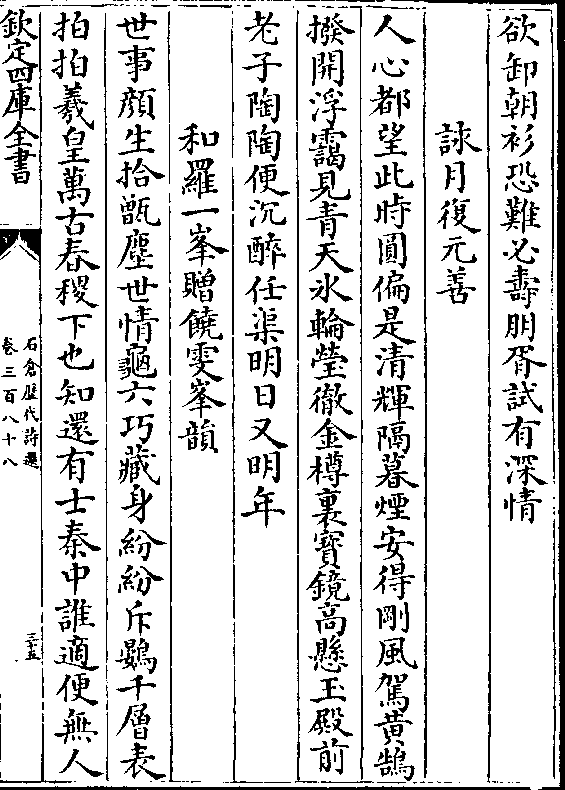 欲卸朝衫恐難必壽朋胥試有深情
詠月復元善
人心都望此時圓偏是清輝隔暮煙安得剛風駕黃鵠
撥開浮靄見青天氷輪瑩徹金樽裏寳鏡高懸玉殿前
老子陶陶便沉醉任渠明日又明年
和羅一峯贈饒雯峯韻
世事顔生拾甑塵世情龜六巧藏身紛紛斥鷃千層表
拍拍羲皇萬古春稷下也知還有士秦中誰適便無人
欽定四庫全書
石倉歷代詩選
卷三百八十八
三十五